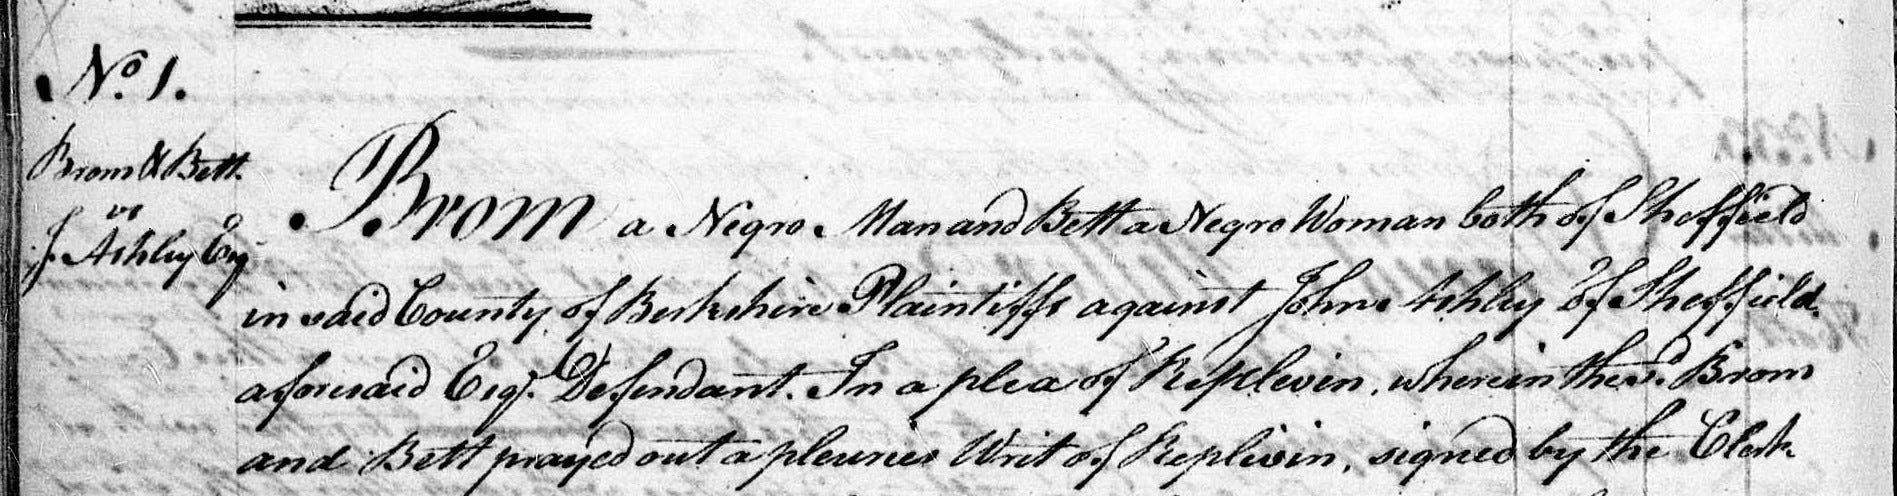 No. 1.
Brom & Bett
vs
J. Ashley Esq
Brom a Negro Man and Bett a Negro Woman both of Sheffield
in said County of Berkshire Plaintiffs against John Ashley of Sheffield
aforesaid Esqr. Defendant. In a plea of Replevin, wherein the sd. Brom
and Bett prayed out a pleuries Writ of Replivin, signed by the Clerk